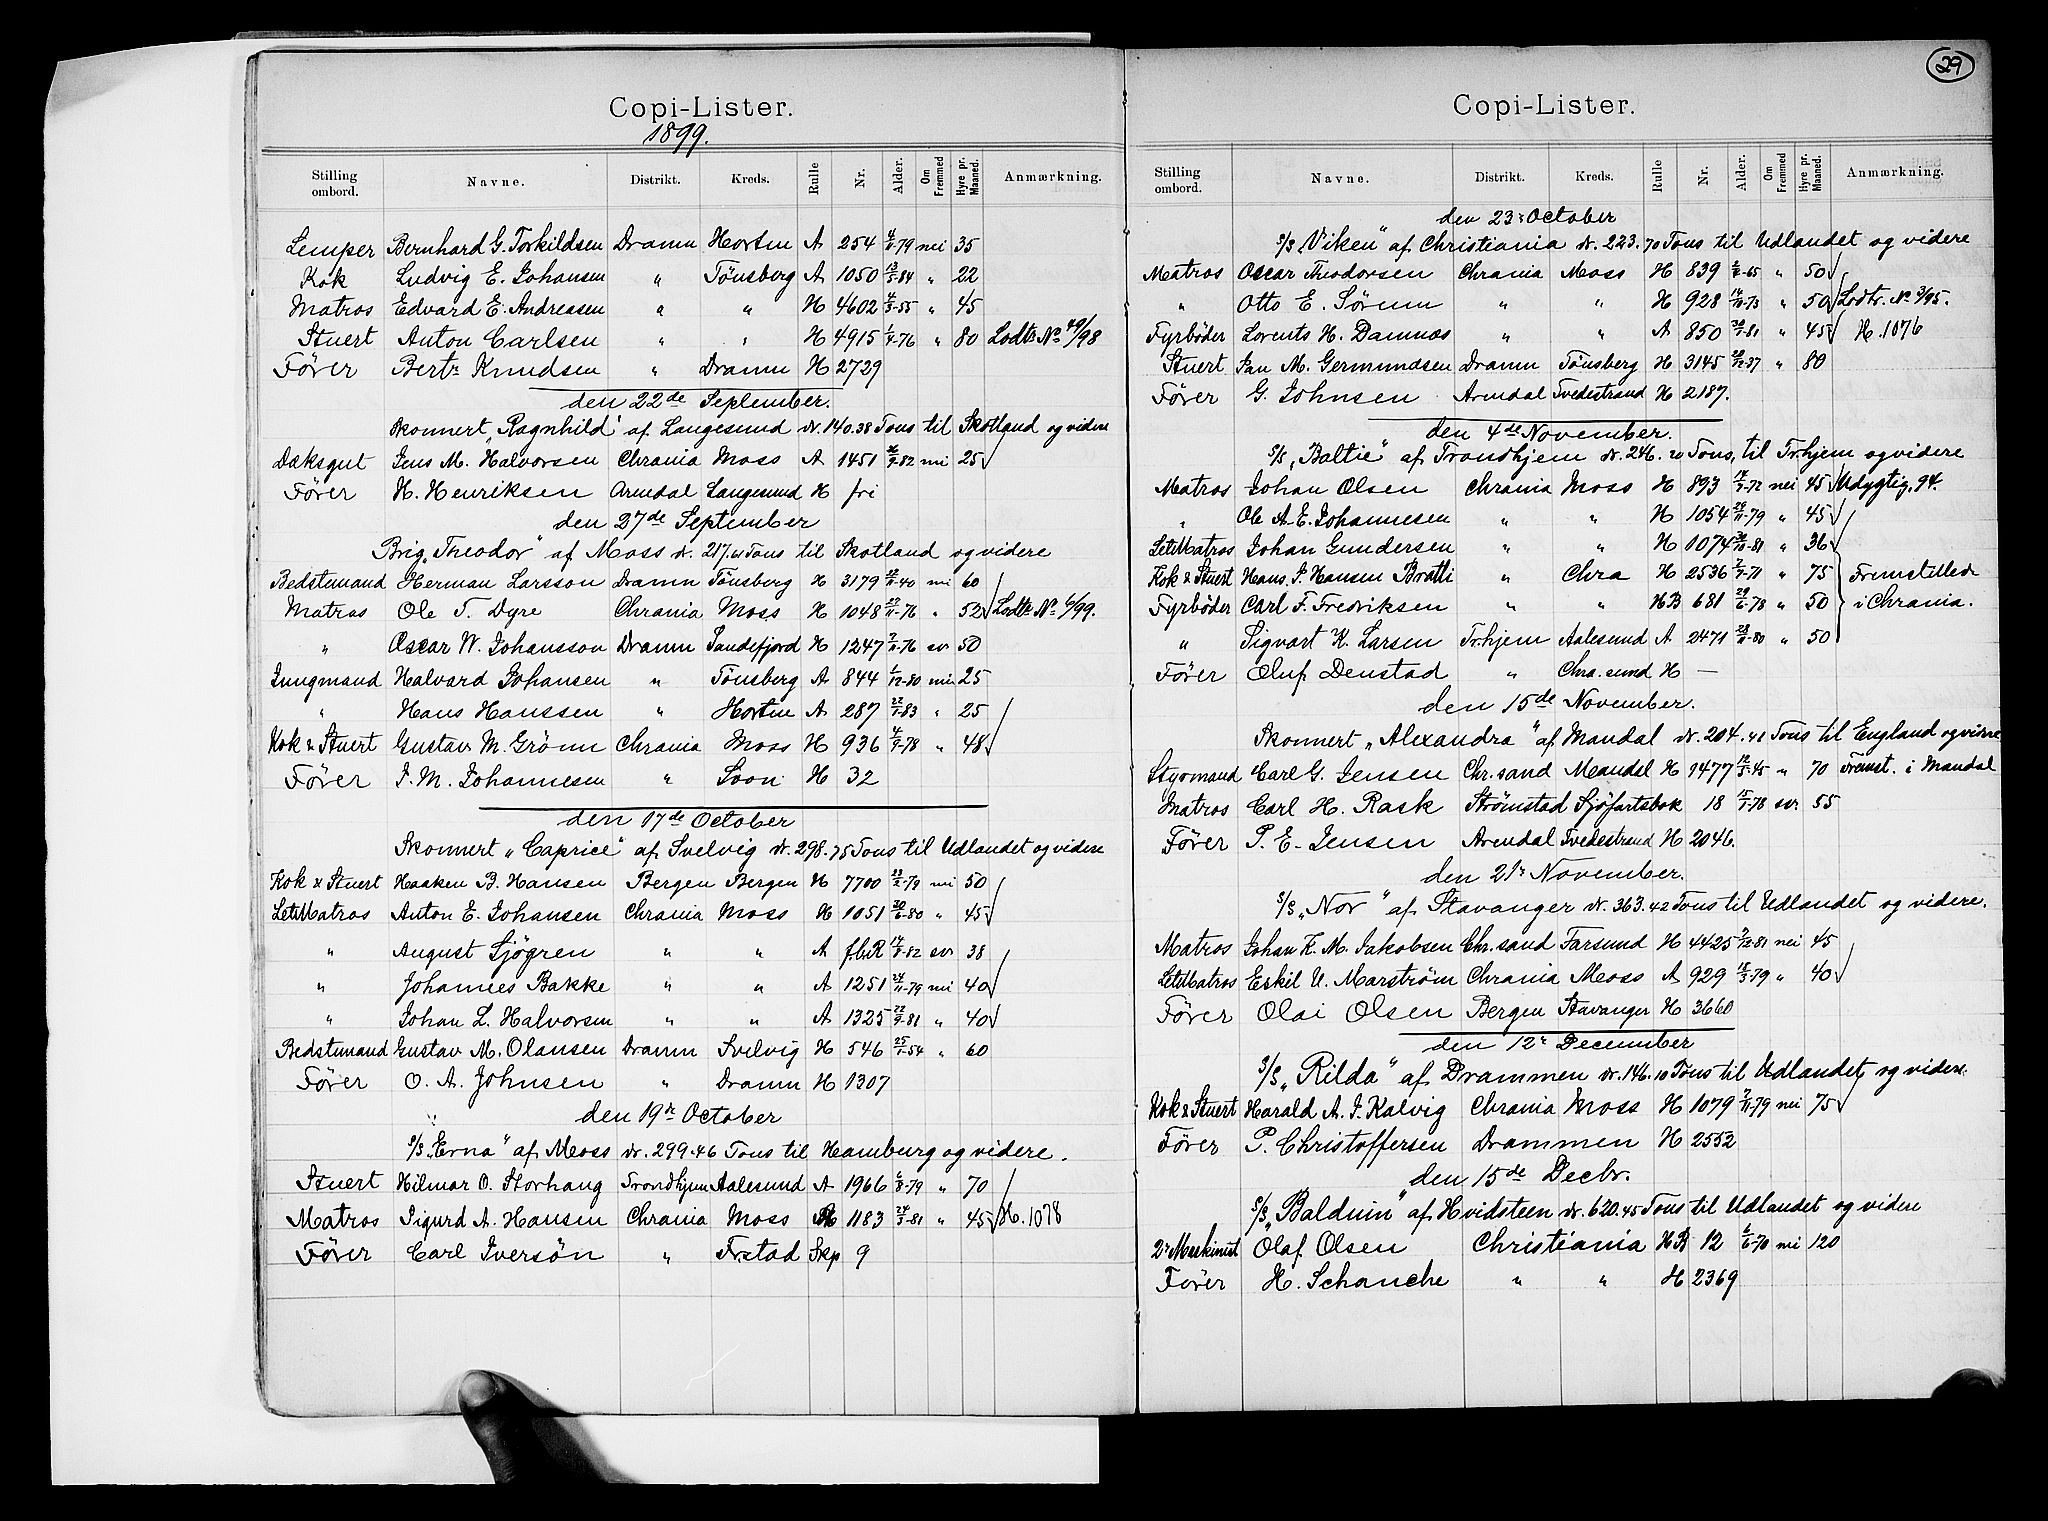 Copi-Lister.
1899.
Stilling ombord. Navne. Distrikt. Kreds. Rulle Nr. Alder. Om Fremmed Hyre pr. Maaned. Anmærkning.
Lemper Bernhard G. Torkildsen Dramn Horten A 254 4/11-79 nei 35
Kok Ludvig E. Johansen " Tönsberg A 1050 13/5-84 " 22
Matros Edvard E. Andreasen " " H 4602 4/9-55 " 45
Stuert Anton Carlsen " " H 4915 1/4-76 " 80 Lodts No 49/98
Förer Bertr Knudsen " Dramn H 2729
den 22de September.
Skonnert „Ragnhild" af Langesund dr. 140.38 Tons til Skotland og videre
Dæksgut Jens M. Halvorsen Chrania Moss A 1451 /9-82 nei 25
Förer H. Henriksen Arendal Langesund H fri
den 27de September
Brig „Theodor" af Moss dr. 217.61 Tons til Skotland og videre
Bedstemand Herman Larsson Dramn Tönsberg H 3179 /11-40 nei 60
Matros Ole T. Dyre Chrania Moss H 1048 27/11-76 " 52 Lodts No 6/99.
" Oscar W. Johansson Dramn Sandefjord H 1247 7/11-76 sv 50
Jungmand Halvard Johansen " Tönsberg A 844 1/12-80 nei 25
" Hans Hanssen " Horten A 287 22/1-83 " 25
Kok & Stuert Gustav M. Grönn Chrania Moss H 936 4/9-78 " 48
Förer J. M. Johannesen " Soon H 32
den 17de October
Skonnert „Caprice" af Svelvig dr. 298.75 Tons til Udlandet og videre
Kok & Stuert Haaken B. Hansen Bergen Bergen H 7700 23/2-79 nei 50
LetMatros Anton E. Johansen Chrania Moss H 1051 20/6-80 " 45
" August Sjögren " " A f.b.R 14/8-82 sv 38
" Johannes Bakke " " A 1251 24/11-79 nei 40
" Johan L. Halvorsen " " A 1325 22/9-81 " 40
Bedstemand Gustav M. Olansen Dramn Svelvig H 546 25/1-54 " 60
Förer O. A. Johnsen " Dramn H 1307
den 19de October
S/S „Erna" af Moss dr. 299.46 Tons til Hamburg og videre.
Stuert Hilmar O. Storhaug Trondhjem Aalesund A 1966 6/8-79 " 70
Matros Sigurd A. Hansen Chrania Moss H 1183 24/5-81 " 45 H. 1078
Förer Carl Iversön " Frstad Skp 9
29
Copi-Lister.
Stilling ombord. Navne. Distrikt. Kreds. Rulle Nr. Alder. Om Fremmed Hyre pr. Maaned. Anmærkning.
den 23r October
S/S „Viken" af Christiania dr. 223.70 Tons til Udlandet og videre
Matros Oscar Theodorsen Chrania Moss H 839 /8-65 " 50
" Otto E. Sörum " " H 928 14/10-73 " 50 Lodtr. No 3/95.
Fyrböder Lorents H. Damnæs " " A 850 20/1-81 " 45 H. 1076
Stuert Jan M. Germundsen Dramn Tönsberg H 3145 /12-37 " 80
Förer G. Johnsen Arendal Tvedestrand H 2187.
den 4de November.
S/S „Baltic" af Trondhjem dr. 246.20 Tons, til Tr.hjem og videre
Matros Johan Olsen Chrania Moss H 893 17/9-72 nei 45 Udygtig. 94.
" Ole A. E. Johannesen " " H 1054 26/11-79 " 45
LetMatros Johan Gundersen " " H 1074 30/10-81 " 36
Kok & Stuert Hans J. Hansen Bratli " Chra H 2536 2/7-71 " 75 Fremstillede
Fyrböder Carl F. Fredriksen " " HB 681 29/6-78 " 50 i Chrania.
" Sigvart K. Larsen Tr.hjem Aalesund A 2471 28/11-80 " 50
Förer Oluf Denstad " Chra.sund H —
den 15de November.
Skonnert „Alexandra" af Mandal dr. 204.41 Tons til England og videre
Styrmand Carl G. Jensen Chr.sand Mandal H 1477 12/5-45 " 70 Fremst. i Mandal
Matros Carl H. Rask Strömstad Sjöfartsbok 18 15/1-78 sv. 55
Förer P. E. Jensen Arendal Tvedestrand H 2046.
den 21r November.
S/S „Nor" af Stavanger dr. 363.42 Tons til Udlandet og videre.
Matros Johan K. M. Jakobsen Chr.sand Farsund H 4425 9/12-81 nei 45
LetMatros Eskil U. Marström Chrania Moss A 929 18/3-79 " 40
Förer Olai Olsen Bergen Stavanger H 3660
den 12r December
S/S „Rilda" af Drammen dr. 146.10 Tons til Udlandet og videre.
Kok & Stuert Harald A. J. Kalvig Chrania Moss H 1079 9/11-79 nei 75
Förer P. Christoffersen Drammen H 2552
den 15de Decbr.
S/S „Balduin" af Hvidsteen dr. 620.45 Tons til Udlandet og videre
2r Maskinist Olaf Olsen Christiania HB 12 6/6-70 nei 120
Förer H. Schanche " " H 2369